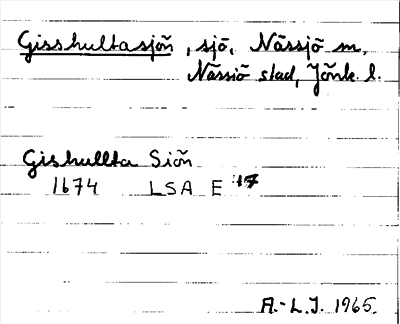 Gisshultasjön, sjö, Nässjö sn,
Nässjö stad, Jönk. l.
Gishullta Siön
1674 LSA E 17
A.-L.J. 1965.